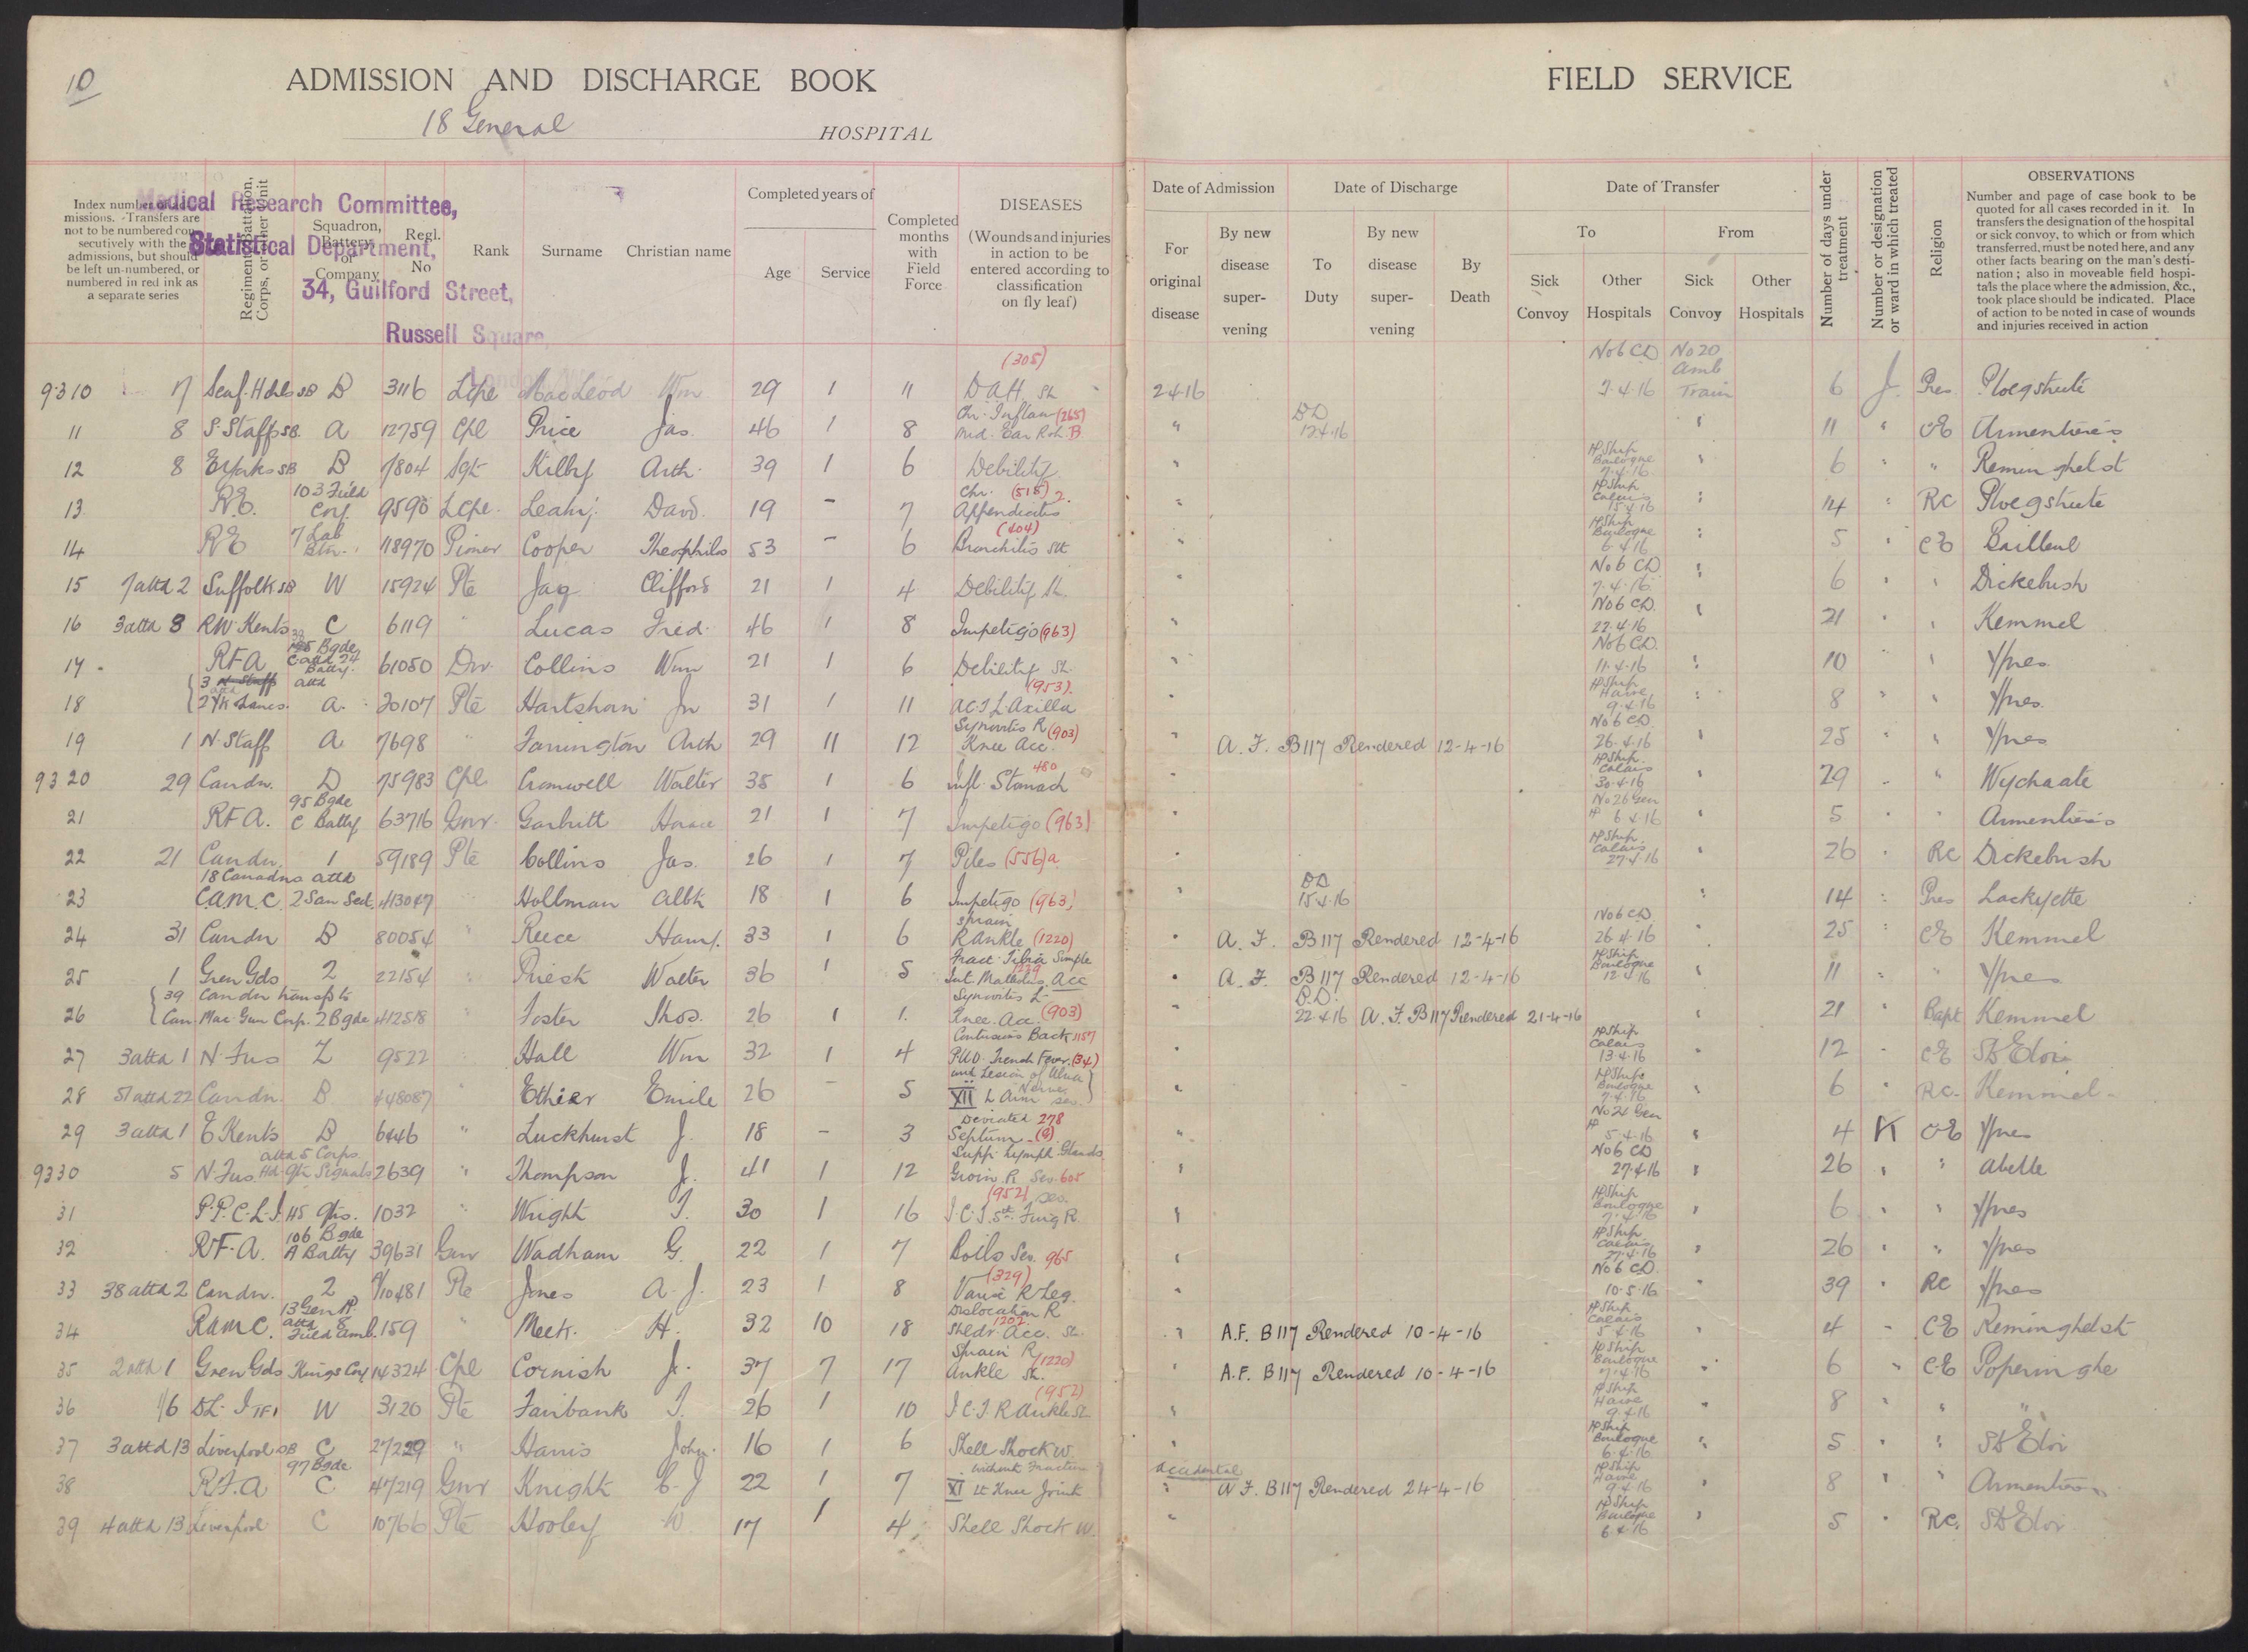 10
ADMISSION AND DISCHARGE BOOK
18 General HOSPITAL
FIELD SERVICE
Medical Research Committee,
Statistical Department,
34, Guilford Street,
Russell Square,
Index number of admissions. Transfers are not to be numbered consecutively with the admissions, but should be left un-numbered, or numbered in red ink as a separate series
Regiment, Battalion, Corps, or other Unit
Squadron, Battery or Company
Regl. No
Rank
Surname
Christian name
Completed years of
Age
Service
Completed months with Field Force
DISEASES
(Wounds and injuries in action to be entered according to classification on fly leaf)
Date of Admission
For original disease
By new disease supervening
Date of Discharge
To Duty
By new disease supervening
By Death
Date of Transfer
To
Sick Convoy
Other Hospitals
From
Sick Convoy
Other Hospitals
Number of days under treatment
Number or designation or ward in which treated
Religion
OBSERVATIONS
Number and page of case book to be quoted for all cases recorded in it. In transfers the designation of the hospital or sick convoy, to which or from which transferred, must be noted here, and any other facts bearing on the man's destination; also in moveable field hospitals the place where the admission, &c., took place should be indicated. Place of action to be noted in case of wounds and injuries received in action
9310 7 Seaf. Hdrs SB B 3116 LCpl MacLeod Wm 29 1 11 DAH. Sh (305) 2416 No 6 CD 7.4.16 No 20 Amb Train 6 J. Pres Ploegsteete
11 8 S. Staffs SB. A 12759 Cpl Price Jas. 46 1 8 Chr. Inflam (265) Mid. Ear B " DD 12.4.16 " 11 " CE Armentieres
12 8 E Yorks SB B 7804 Sgt Kilby Arth. 39 1 6 Debility " HShip Boulogne 7.4.16 " 6 " " Reminghelst
13 R.E. 103 Field Coy. 9590 LCpl. Leahy David. 19 - 7 Chr. (515) 2. Appendicitis " HShip Calais 15.4.16 " 14 " RC Ploegsteete
14 RE 7 Lab Btn. 118970 Pioner Cooper Theophilos 53 - 6 (404) Bronchitis " HShip Boulogne 6.4.16 " 5 " CE Bailleul
15 7 attd 2 Suffolk SB W 15924 Pte Jay Clifford 21 1 4 Debility Sh. " No 6 CD 7.4.16 " 6 " " Dickebush
16 3 attd 8 RW Kents C 6119 " Lucas Fred. 46 1 8 Impetigo (963) " No 6 CD. 22.4.16 " 21 " " Kemmel
17 RFA Bgde C attd 24 Batty. 61050 Dvr. Collins Wm 21 1 6 Debility Sh. " No 6 CD. 11.4.16 " 10 " " Ypres
18 3 N Staff attd 2 YK Lancs. A. 20107 Pte Hartshorn Jn 31 1 11 (953). ACT L. Axilla " HShip Havre 9.4.16 " 8 " " Ypres.
19 1 N. Staff A 7698 " Farrington Arth 29 11 12 Synovitis R (903) Knee Acc. " A. F. B117 Rendered 12-4-16 No 6 CD. 26.4.16 " 25 " " Ypres
9320 29 Candn. D 75983 Cpl Cromwell Walter 35 1 6 Infl. Stomach 480 " HShip. Calais 30.4.16 " 29 - " Wychaate
21 RFA. 95 Bgde C Batty 63716 Gnr. Garbutt Horace 21 1 7 Impetigo (963) " No 26 Gen H 6.4.16 " 5 " " Armentieres
22 21 Candn. 1 59189 Pte Collins Jas. 26 1 7 Piles (556)a " HShip. Calais 27.4.16 " 26 " RC Dickebush
23 18 Canadns attd C.A.M.C. 2 San Sect. 413047 Hollman Albt 18 1 6 Impetigo (963) " DD 15.4.16 " 14 " Pres Lockyette
24 31 Candn B 80054 " Reece 33 1 6 Sprain R Ankle (1220) " A. F. B117 Rendered 12-4-16 No 6 CD. 26.4.16 " 25 " CE Kemmel
25 1 Gren Gds 2 22154 " Priest Walter 36 1 5 Fract. Tibia Simple 1229 Int. Malleolus Acc " A. F. B117 Rendered 12-4-16 HShip Boulogne 12.4.16 " 11 " " Ypres
26 39 Candn transf to Can Mac Gun Corp. 2 Bgde 412518 " Foster Thos. 26 1 1. Synovitis L Knee. Acc. (903) " D.D. 22.4.16 A. F. B117 Rendered 21-4-16 " 21 " Bapt Kemmel
27 3 attd 1 N. Fus Z 9522 Hall Wm 32 1 4 Contusions Back 1157 PUO. Trench Fever. (34) " HShip Calais 13.4.16 " 12 - CE St Eloi
28 51 attd 22 Candn. B. 448087 " Ethier Emile 26 - 5 with Lesion of Ulna Nerve XII L Arm " HShip Boulogne 7.4.16 6 " RC. Kemmel
29 3 attd 1 E Kents B 6446 " Luckhurst J. 18 - 3 Deviated 278 Septum " No 26 Gen H 5.4.16 " 4 K CE Ypres
9330 5 N. Fus. attd 5 Corps Hd. Qtr Signals 2639 " Thompson J. 41 1 12 Supp. Lymph. Glands Groin R Sev. 605 " No 6 CD 27.4.16 " 26 " " Abelle
31 P.P.C.L.I. HS Qtrs. 1032 " Wright T. 30 1 16 (952) sev. I.C.T. 5th Fing R. " HShip Boulogne 7.4.16 " 6 " " Ypres
32 R.F.A. 106 Bgde A Batty 39631 Gnr Wadham G. 22 1 7 Boils Sev. 965 " HShip Calais 27.4.16 " 26 " " Ypres
33 38 attd 2 Candn. 2 10481 Pte Jones A. J. 23 1 8 (329) Varix R Leg. " No 6 CD. 10.5.16 " 39 " RC Ypres
34 RAMC. 13 Gen H. attd 8 Field Amb. 159 " Meek. H. 32 10 18 Dislocation R 1202 Shldr Acc. Sh. " A.F. B117 Rendered 10-4-16 HShip. Calais 5.4.16 " 4 - CE Reminghelst
35 2 attd 1 Gren Gds Kings Coy 14324 Cpl Cornish J. 37 7 17 Sprain R (1220) Ankle Sh. " A.F. B117 Rendered 10-4-16 HShip Boulogne 7.4.16 " 6 " C.E Poperinghe
36 1/6 DL. I TF W 3120 Pte Fairbank T. 26 1 10 (952) I.C.T. R Ankle Sh " HShip Havre 9.4.16 " 8 " " "
37 3 attd 13 Liverpool SB C 27229 " Harris John. 16 1 6 Shell Shock W. " HShip Boulogne 6.4.16 " 5 " " St Eloi
38 R.F.A 97 Bgde C. 47219 Gnr Knight C. J 22 1 7 without fracture XI Lt Knee Joint accidental " A F. B117 Rendered 24-4-16 HShip Havre 9.4.16 8 " " Armentieres
39 4 attd 13 Liverpool C 10766 Pte Hooley W 17 1 4 Shell Shock W. " HShip Boulogne 6.4.16 " 5 " RC. St Eloi